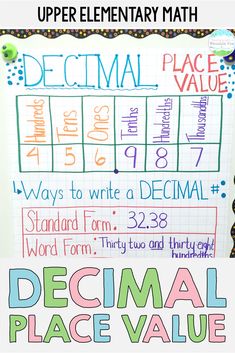 UPPER ELEMENTARY MATH
DECIMAL PLACE VALUE
Hundreds Tens Ones Tenths Hundredths Thousandths
4 5 6 9 8 7
Ways to write a DECIMAL #:
Standard Form: 32.38
Word Form: Thirty two and thirty eight
hundredths
DECIMAL
PLACE VALUE